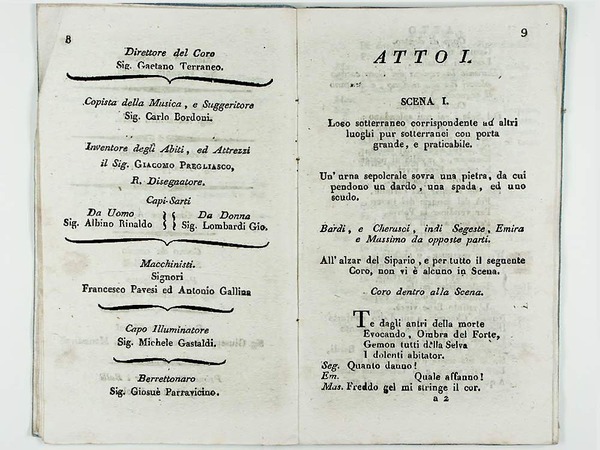 8
Direttore del Coro
Sig. Gaetano Terraneo.
Copista della Musica, e Suggeritore
Sig. Carlo Bordoni.
Inventore degli Abiti, ed Attrezzi
il Sig. GIACOMO PREGLIASCO,
R. Disegnatore.
Capi-Sarti
Da Uomo Da Donna
Sig. Albino Rinaldo Sig. Lombardi Gio.
Macchinisti.
Signori
Francesco Pavesi ed Antonio Gallina
Capo Illuminatore
Sig. Michele Gastaldi.
Berrettonaro
Sig. Giosuè Parravicino.
9
ATTO I.
SCENA I.
Loco sotterraneo corrispondente ad altri
luoghi pur sotterranei con porta
grande, e praticabile.
Un' urna sepolcrale sovra una pietra, da cui
pendono un dardo, una spada, ed uno
scudo.
Bardi, e Cherusci, indi Segeste, Emira
e Massimo da opposte parti.
All' alzar del Sipario, e per tutto il seguente
Coro, non vi è alcuno in Scena.
Coro dentro alla Scena.
Te dagli antri della morte
Evocando, Ombra del Forte,
Gemon tutti della Selva
I dolenti abitator.
Seg. Quanto danno!
Em. Quale affanno!
Mas. Freddo gel mi stringe il cor.
a 2